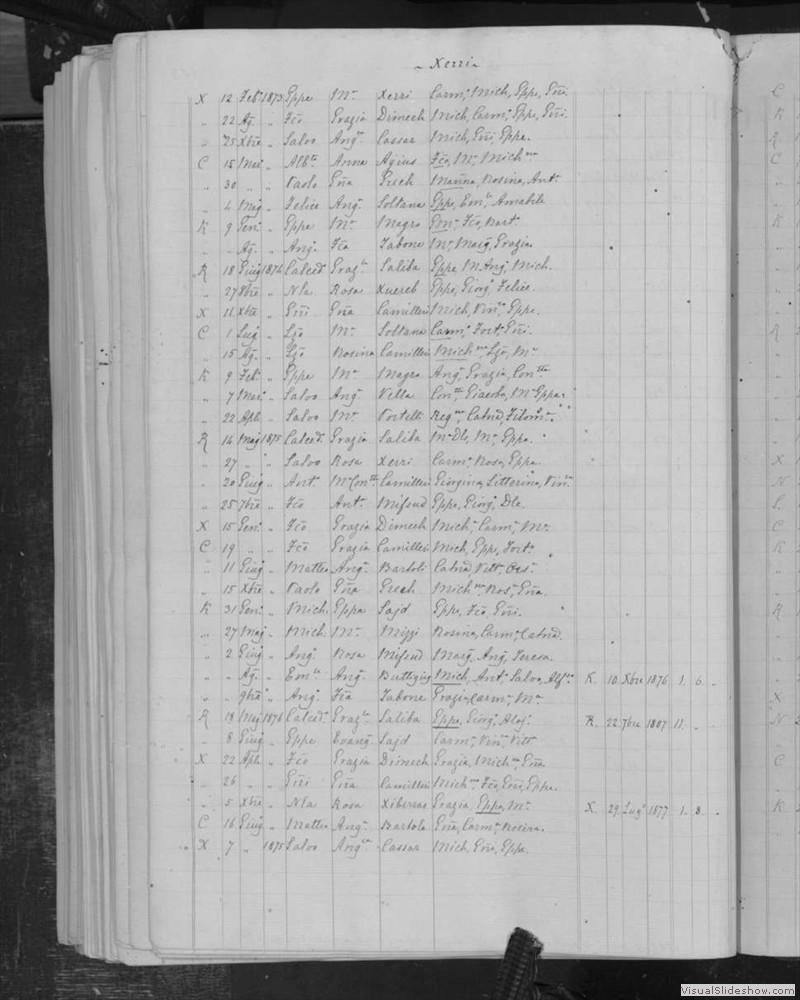 Xerri
X 12 Feb. 1873 Eppe Ma Xerri Carm, Mich, Eppe, Eñi
" 22 Ag. " Fco Grazia Dimech Mich, Carm, Eppe, Eñi.
" 25 Xbre " Salvo Ang. Cassar Mich, Eñi, Eppa.
C 15 Mar " Alb. Anna Agius Fco, Ma Mich
" 30 " " Paolo Eña Grech Rosina, Ant.
" 4 Mag " Felice Ang. Soltana Eppe, Em. Amabile
K 9 Gen. " Eppe Ma Magro Em. Fco, Bart.
" " Ag. " Ang. Fca Zabone Ma Marg, Grazia
R 18 Giug 1874 Calced. Graz. Saliba Eppa, M. Ang, Mich.
" 27 8bre " Nla Rosa Xuereb Eppe, Giorg, Felice.
X 11 Xbre " Eñi Eña Camilleri Mich, Vin. Eppe.
C 1 Lug " Lzo Ma Soltana Carm. Fort, Eñi.
" 15 Ag. " Lzo Rosina Camilleri Mich Lzo, Ma
K 9 Feb. " Eppe Ma Magro Ang, Grazia, Con.
" 7 Mar. " Salvo Ang. Vella Con. Giacobo, M. Eppa
" 22 Apl. " Salvo Ma Portelli Reg. Catna, Filom.
R 14 Mag 1875 Calced. Grazia Saliba Ma Dlc, Ma, Eppa.
" 27 " " Salvo Rosa Xerri Carm. Rosa, Eppa.
" 20 Giug " Ant. Ma Con. Camilleri Giorgina, Litterina, Vin.
" 25 7bre " Fco Ant. Mifsud Eppe, Giorg, Dlc.
X 15 Gen. " Fco Grazia Dimech Mich, Carm, Ma
C 19 " " Fco Grazia Camilleri Mich, Eppe, Fort.
" 11 Giug " Matteo Ang. Bartoli Catna, Vitt.
" 15 Xbre " Paolo Eña Grech Mich Ros. Eña.
K 31 Gen. " Mich. Eppa Sajd Eppe, Fco, Eñi.
" 27 Mag " Mich. Ma Mizzi Rosina, Carm, Catna.
" 2 Giug " Ang. Rosa Mifsud Marg, Ang, Teresa.
" " Ag. " Em. Ang. Buttigieg Mich, Ant. Salvo, Alf. K. 10 Xbre 1876 1. 6. "
" " 9bre " Ang. Fca Zabone Grazia, Carm. Ma
R 18 Mag 1876 Calced. Graz. Saliba Eppe, Giorg, Aloj. R. 22 7bre 1887 11. " "
" 8 Giug " Eppe Evang. Sajd Carm. Vin. Vitt
X 22 Apl. " Fco Grazia Dimech Grazia, Mich, Eña
" 26 " " Eñi Eña Camilleri Mich, Fco, Eña, Eppe.
" 5 Xbre " Nla Rosa Xiberras Grazia, Eppa, Ma X. 29 Lug. 1877 1. 8. "
C 16 Giug " Matteo Ang. Bartolo Eña, Carm. Rosina.
X 7 " 1875 Salvo Ang. Cassar Mich, Eña, Eppa.
VisualSlideshow.com